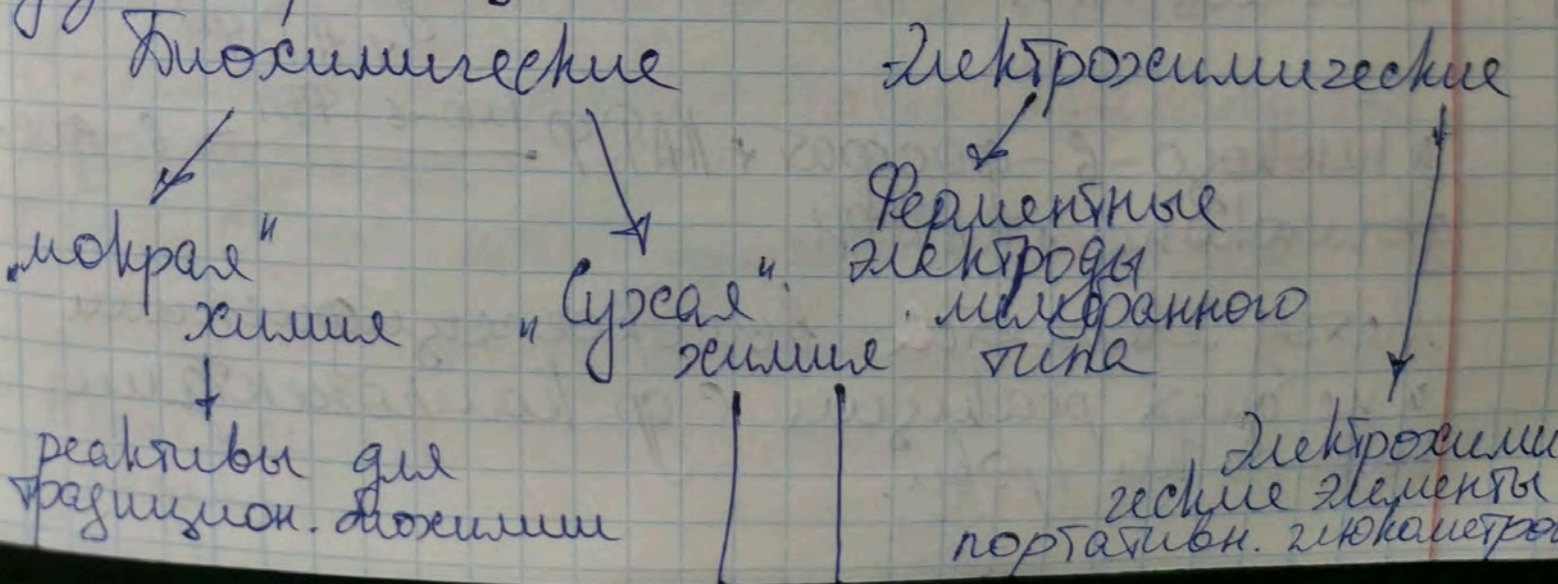 Биохимические
Электрохимические
„мокрая"
химия
"Сухая"
химия
Ферментные
электроды
мембранного
типа
реактивы для
традицион. биохимии
Электрохими
ческие элементы
портативн. глюкометров